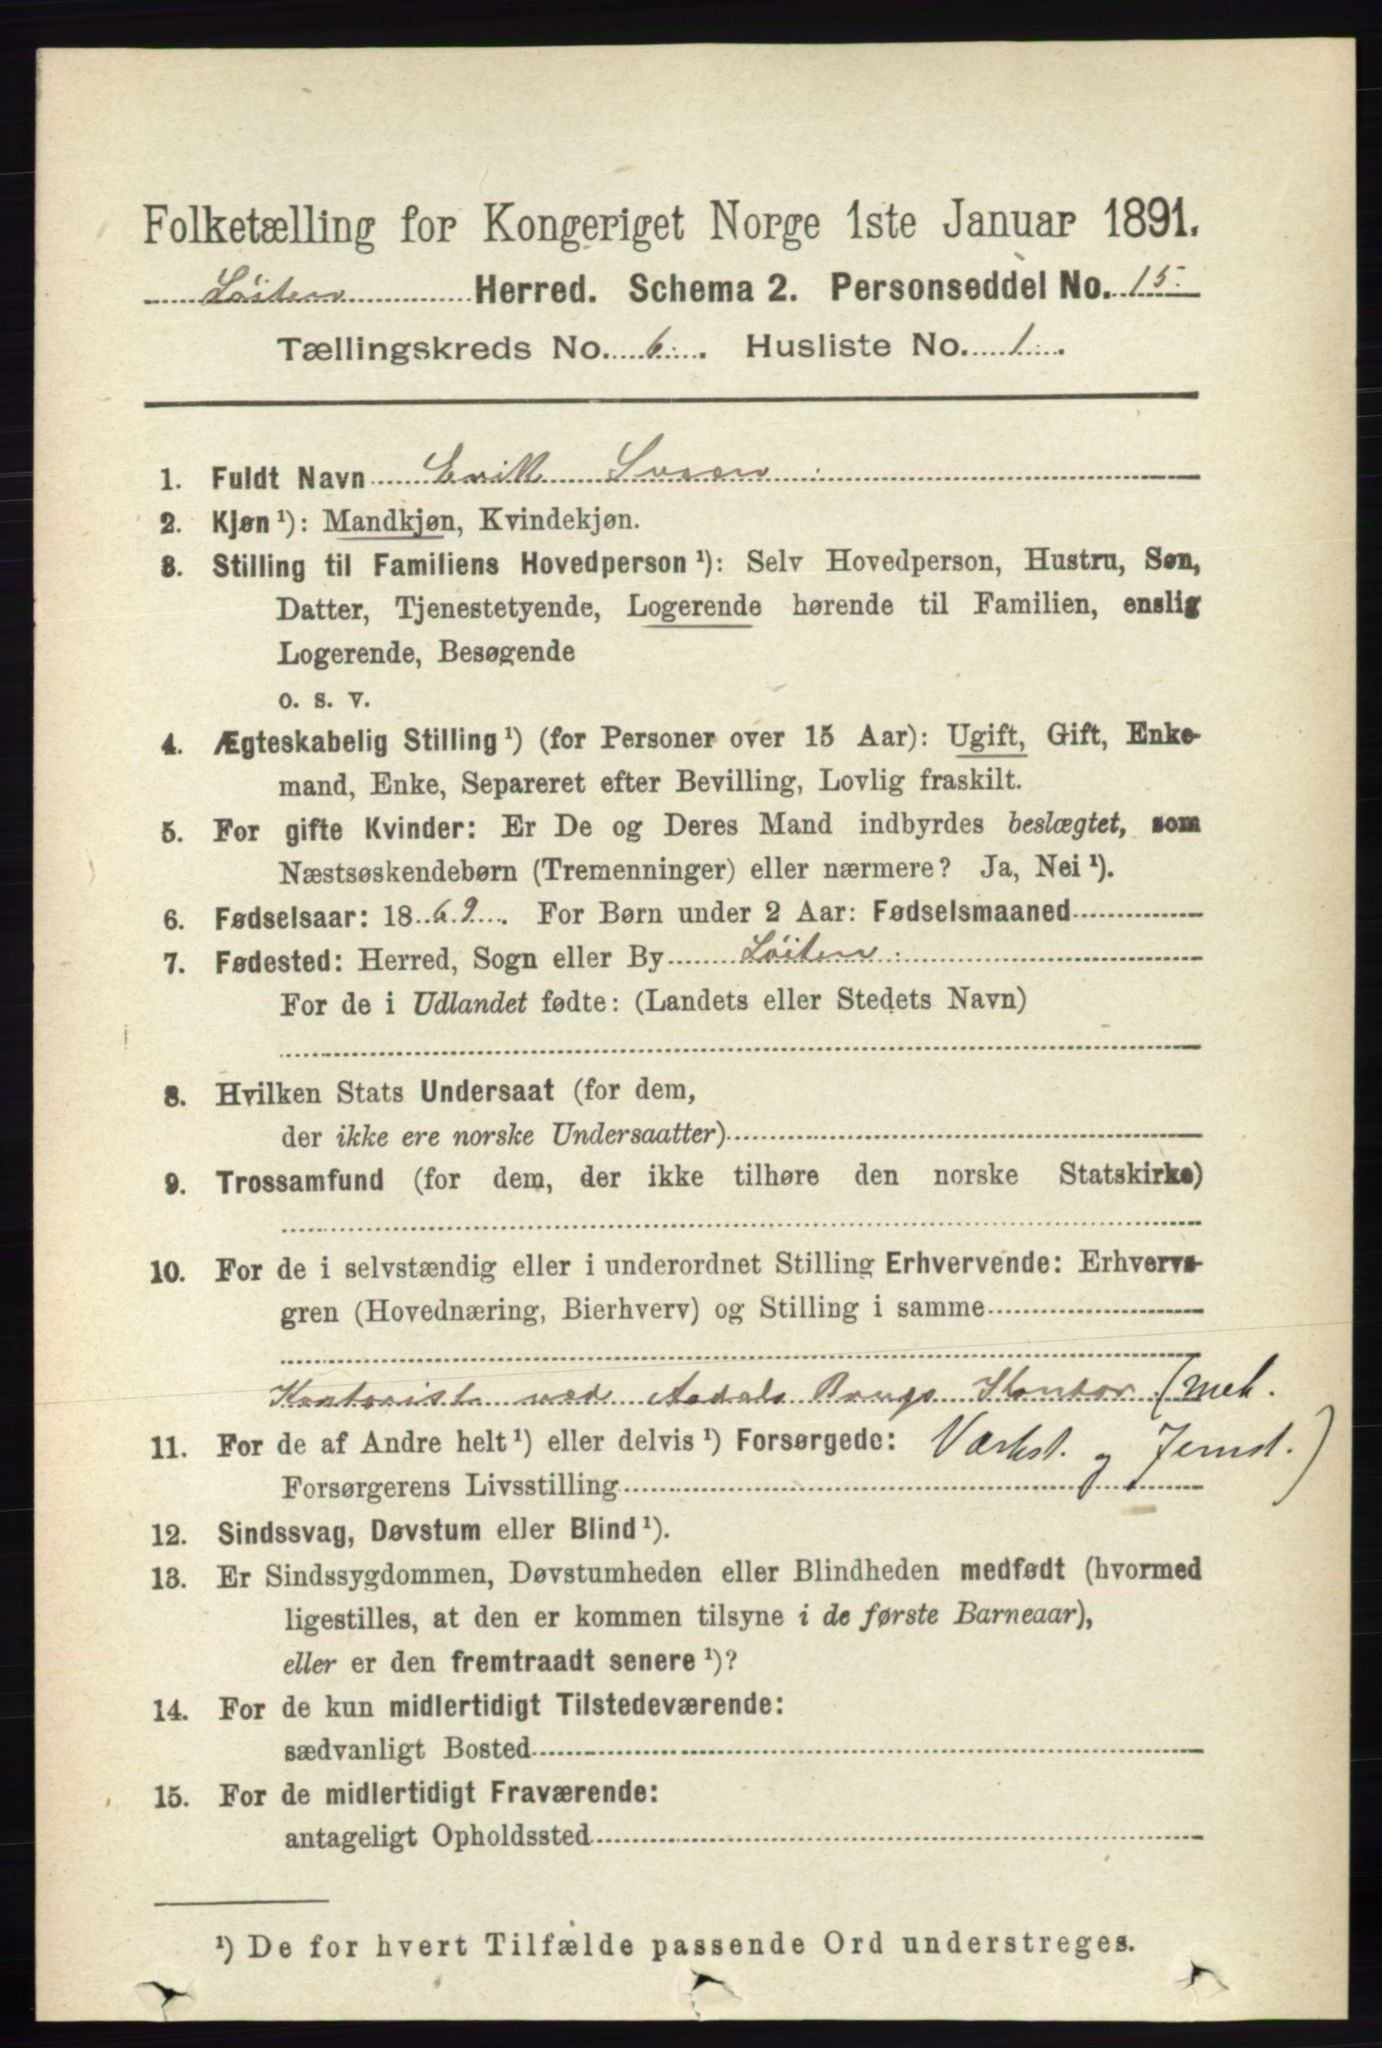 Folketælling for Kongeriget Norge 1ste Januar 1891.
Løiten Herred. Schema 2. Personseddel No. 15.
Tællingskreds No. 6. Husliste No. 1.
1. Fuldt Navn Erik Sveen
2. Kjøn ¹): Mandkjøn, Kvindekjøn.
3. Stilling til Familiens Hovedperson ¹): Selv Hovedperson, Hustru, Søn,
Datter, Tjenestetyende, Logerende hørende til Familien, enslig
Logerende, Besøgende
o. s. v.
4. Ægteskabelig Stilling ¹) (for Personer over 15 Aar): Ugift, Gift, Enke-
mand, Enke, Separeret efter Bevilling, Lovlig fraskilt.
5. For gifte Kvinder: Er De og Deres Mand indbyrdes beslægtet, som
Næstsøskendebørn (Tremenninger) eller nærmere? Ja, Nei ¹).
6. Fødselsaar: 1869. For Børn under 2 Aar: Fødselsmaaned
7. Fødested: Herred, Sogn eller By Løiten
For de i Udlandet fødte: (Landets eller Stedets Navn)
8. Hvilken Stats Undersaat (for dem,
der ikke ere norske Undersaatter)
9. Trossamfund (for dem, der ikke tilhøre den norske Statskirke)
10. For de i selvstændig eller i underordnet Stilling Erhvervende: Erhvervs-
gren (Hovednæring, Bierhverv) og Stilling i samme
Kontorist ved Aadals Brugs Kontor (mek.
11. For de af Andre helt ¹) eller delvis ¹) Forsørgede: Værkst. og Jernst.)
Forsørgerens Livsstilling
12. Sindssvag, Døvstum eller Blind ¹).
13. Er Sindssygdommen, Døvstumheden eller Blindheden medfødt (hvormed
ligestilles, at den er kommen tilsyne i de første Barneaar),
eller er den fremtraadt senere ¹)?
14. For de kun midlertidigt Tilstedeværende:
sædvanligt Bosted
15. For de midlertidigt Fraværende:
antageligt Opholdssted
¹) De for hvert Tilfælde passende Ord understreges.